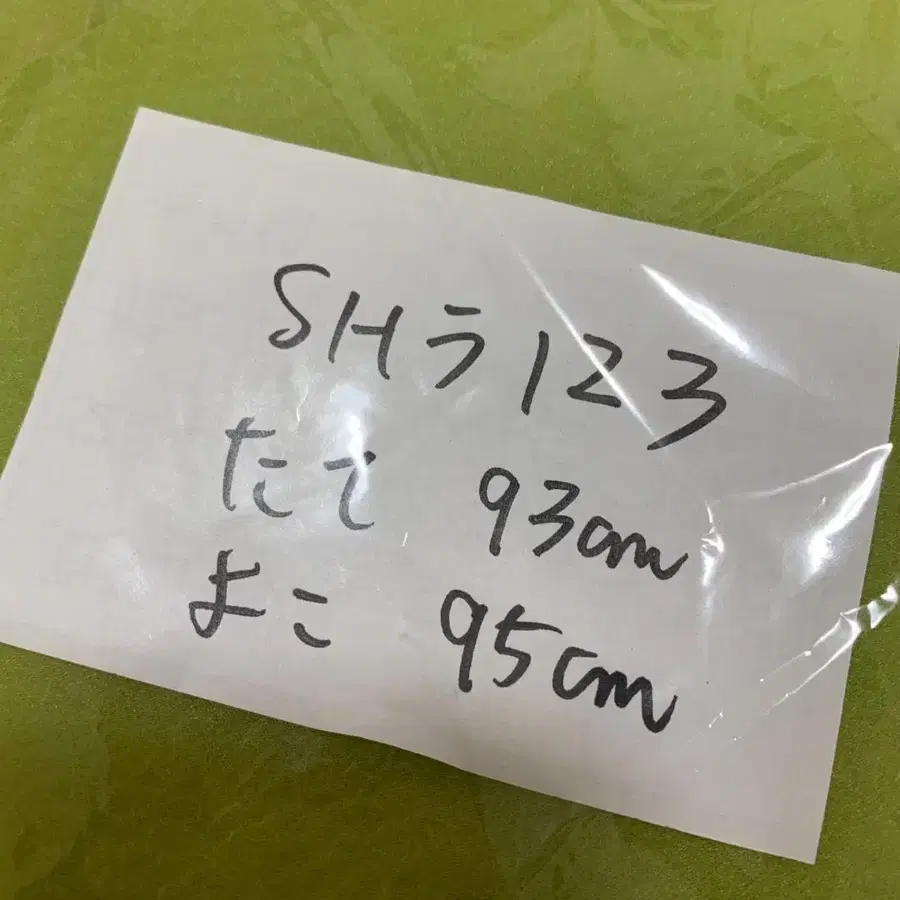 SHラ123
たて 93cm
よこ 95cm